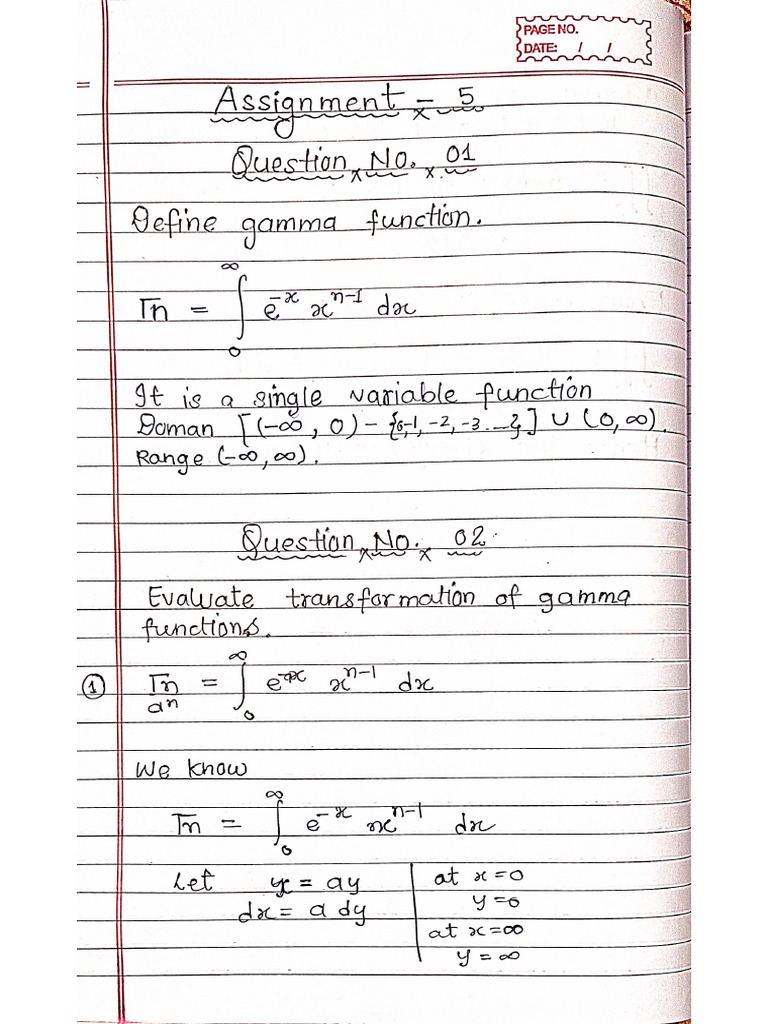 PAGE NO.
DATE: / /
Assignment - 5
Question No. 01
Define gamma function.
Γn = ∫₀^∞ e^-x x^n-1 dx
It is a single variable function
Doman [(-∞, 0) - {0,-1, -2, -3 ---}] ∪ (0, ∞).
Range (-∞, ∞).
Question No. 02
Evaluate transformation of gamma
functions.
① Γn/a^n = ∫₀^∞ e^-ax x^n-1 dx
We know
Γn = ∫₀^∞ e^-x x^n-1 dx
Let x = ay
dx = a dy
at x=0
y=0
at x=∞
y=∞